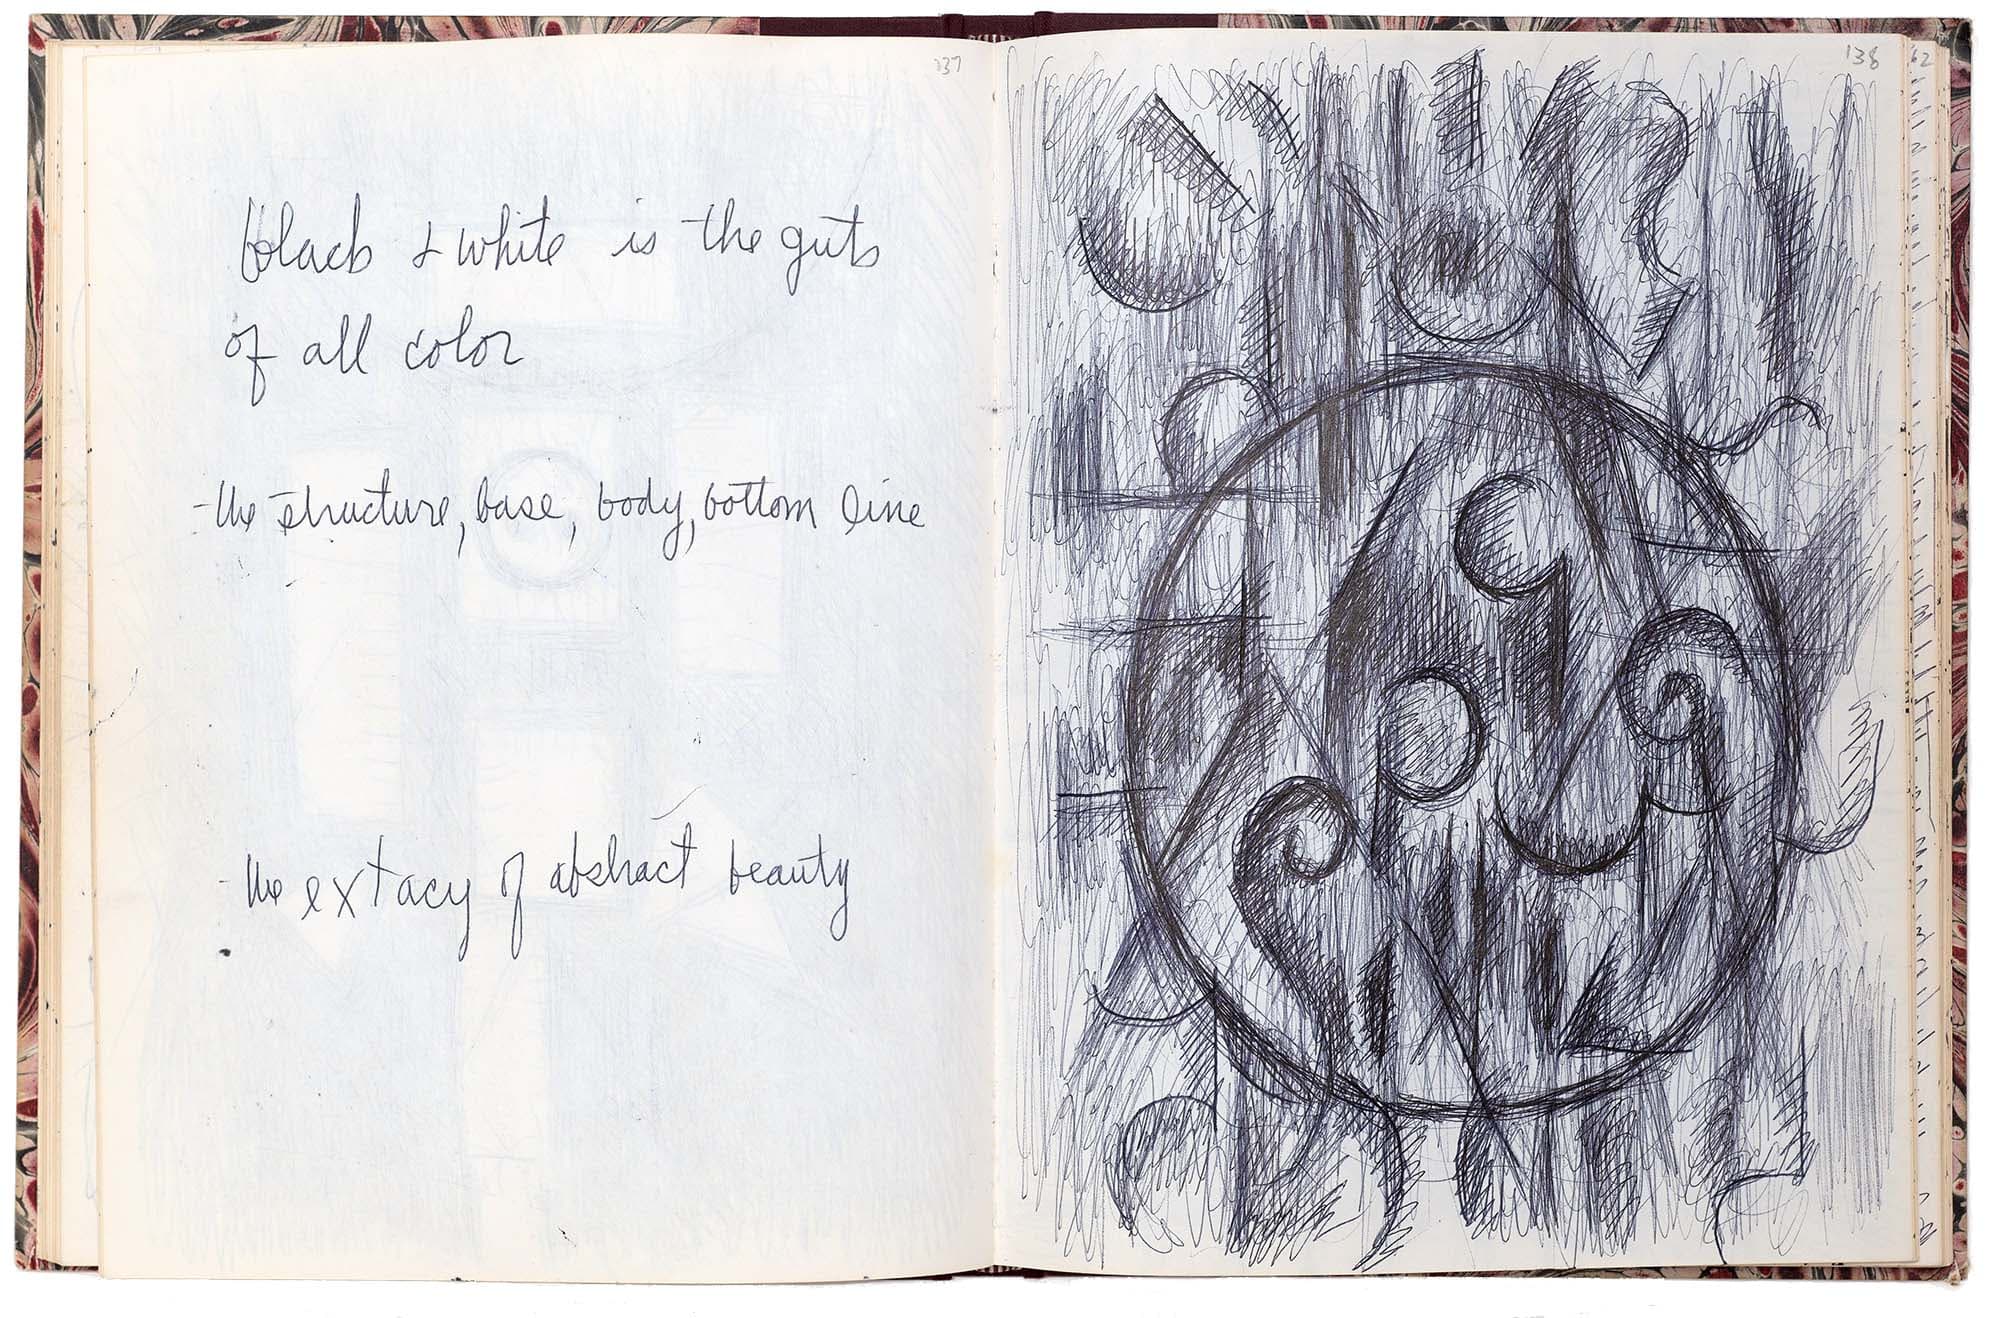 137
black & white is the guts
of all color
- the structure, base, body, bottom line
- the extacy of abstract beauty
138
62